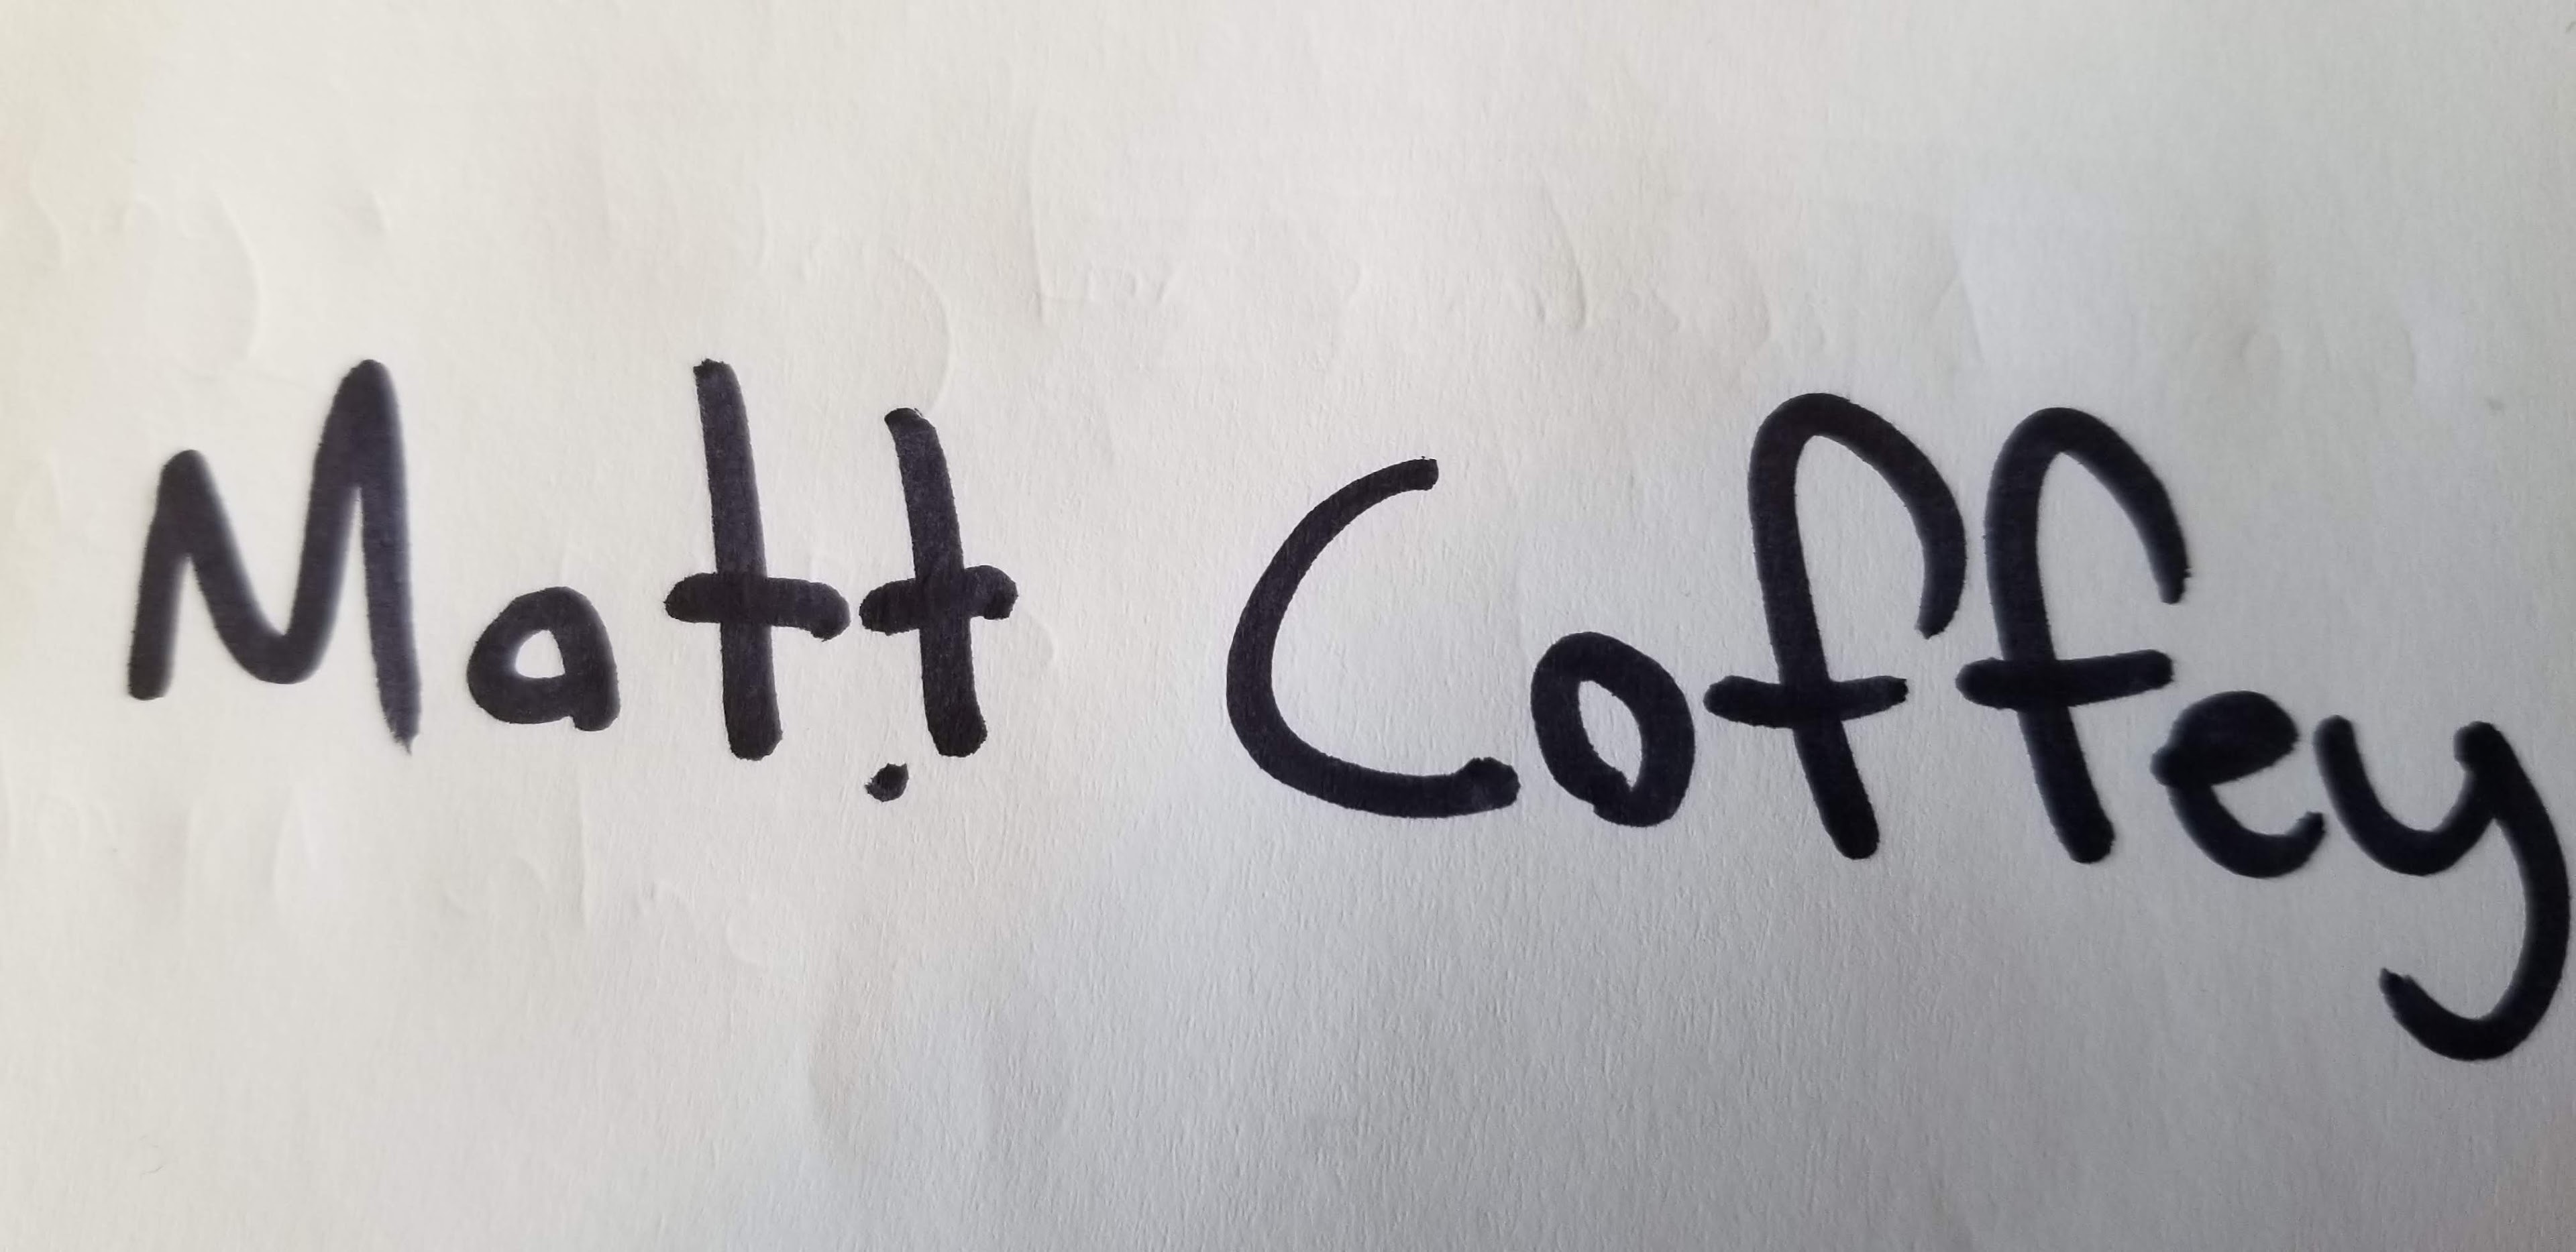 Matt Coffey